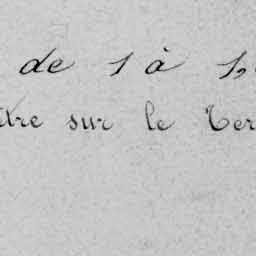 de 1 à
sur le Ter